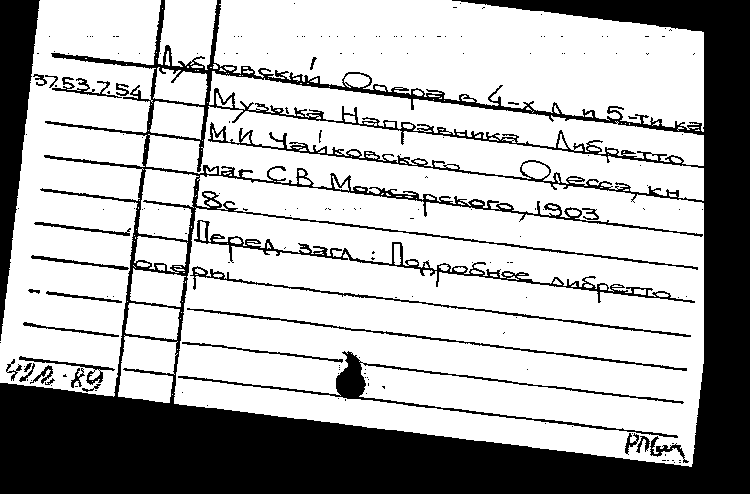 Дубровский Опера в 4-х д. и 5-ти ка
3253.7.54
Музыка Направника. Либретто
М.И. Чайковского Одесса, кн.
маг. С.В. Можарского, 1903.
8с.
Перед загл.: Подробное либретто
оперы.